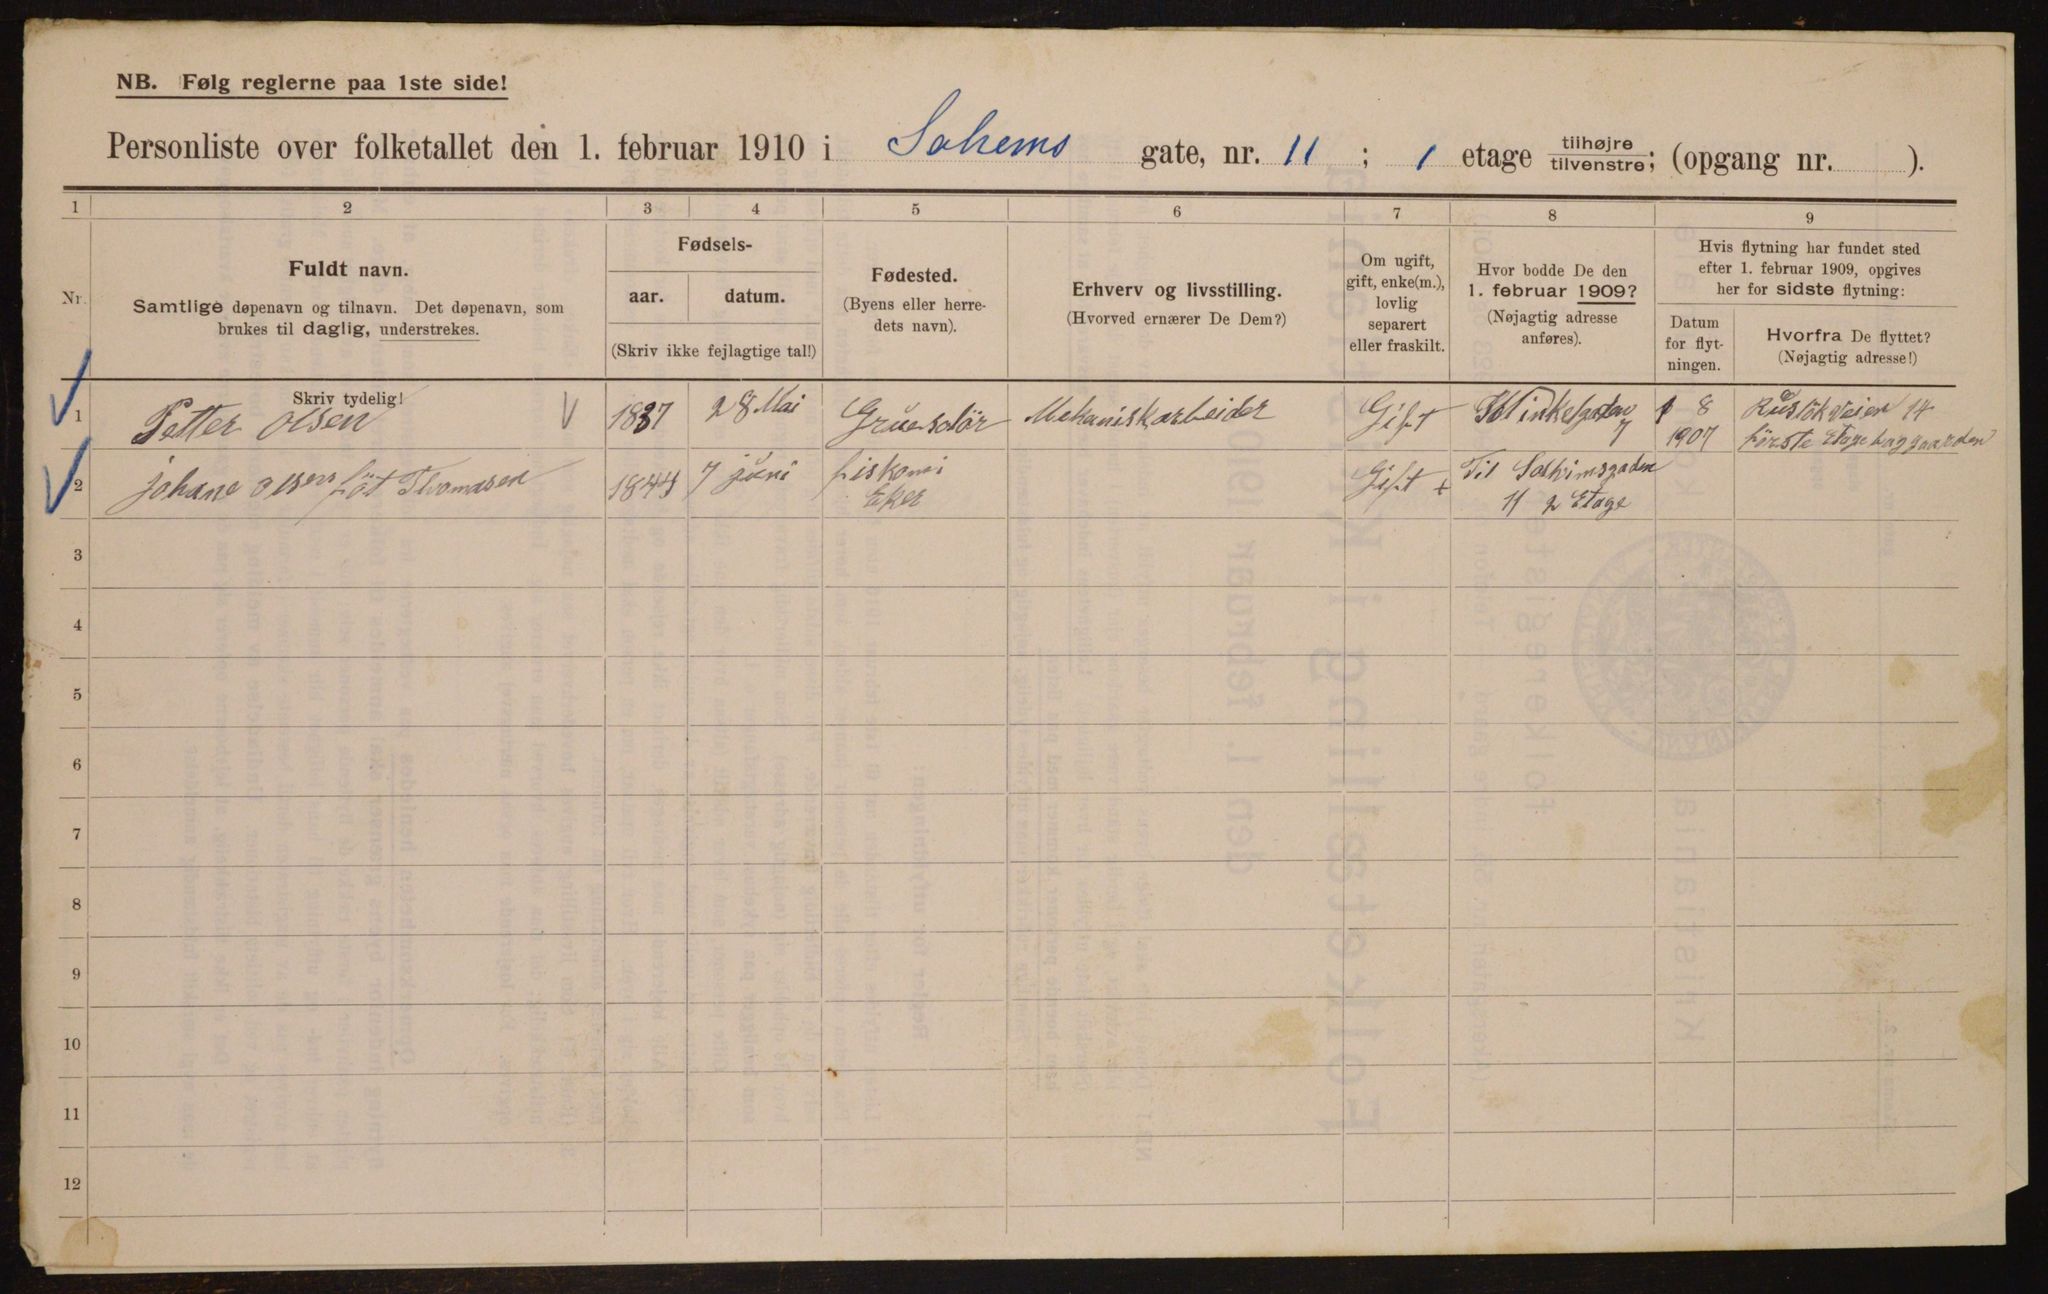 NB. Følg reglerne paa 1ste side!
Personliste over folketallet den 1. februar 1910 i Sohems gate, nr. 11 ; 1 etage tilhøjre tilvenstre; (opgang nr. ).
1 2 3 4 5 6 7 8 9
Nr.
Fuldt navn.
Samtlige døpenavn og tilnavn. Det døpenavn, som
brukes til daglig, understrekes.
Skriv tydelig!
Fødsels-
aar. datum.
(Skriv ikke fejlagtige tal!)
Fødested.
(Byens eller herre-
dets navn).
Erhverv og livsstilling.
(Hvorved ernærer De Dem?)
Om ugift,
gift, enke(m.),
lovlig
separert
eller fraskilt.
Hvor bodde De den
1. februar 1909?
(Nøjagtig adresse
anføres).
Hvis flytning har fundet sted
efter 1. februar 1909, opgives
her for sidste flytning:
Datum
for flyt-
ningen.
Hvorfra De flyttet?
(Nøjagtig adresse!)
1 Petter Olsen 1837 28 Mai Grue Solör Mekaniskarbeider Gift
7
8
1907
Ruslökveien 14
förste Etage baggaarden
2 Johane Olsen föt Thomasen 1844 7 juni fiskomi
Eker
Gift +
Til Solhimsgaden
11 2 Etage
3
4
5
6
7
8
9
10
11
12